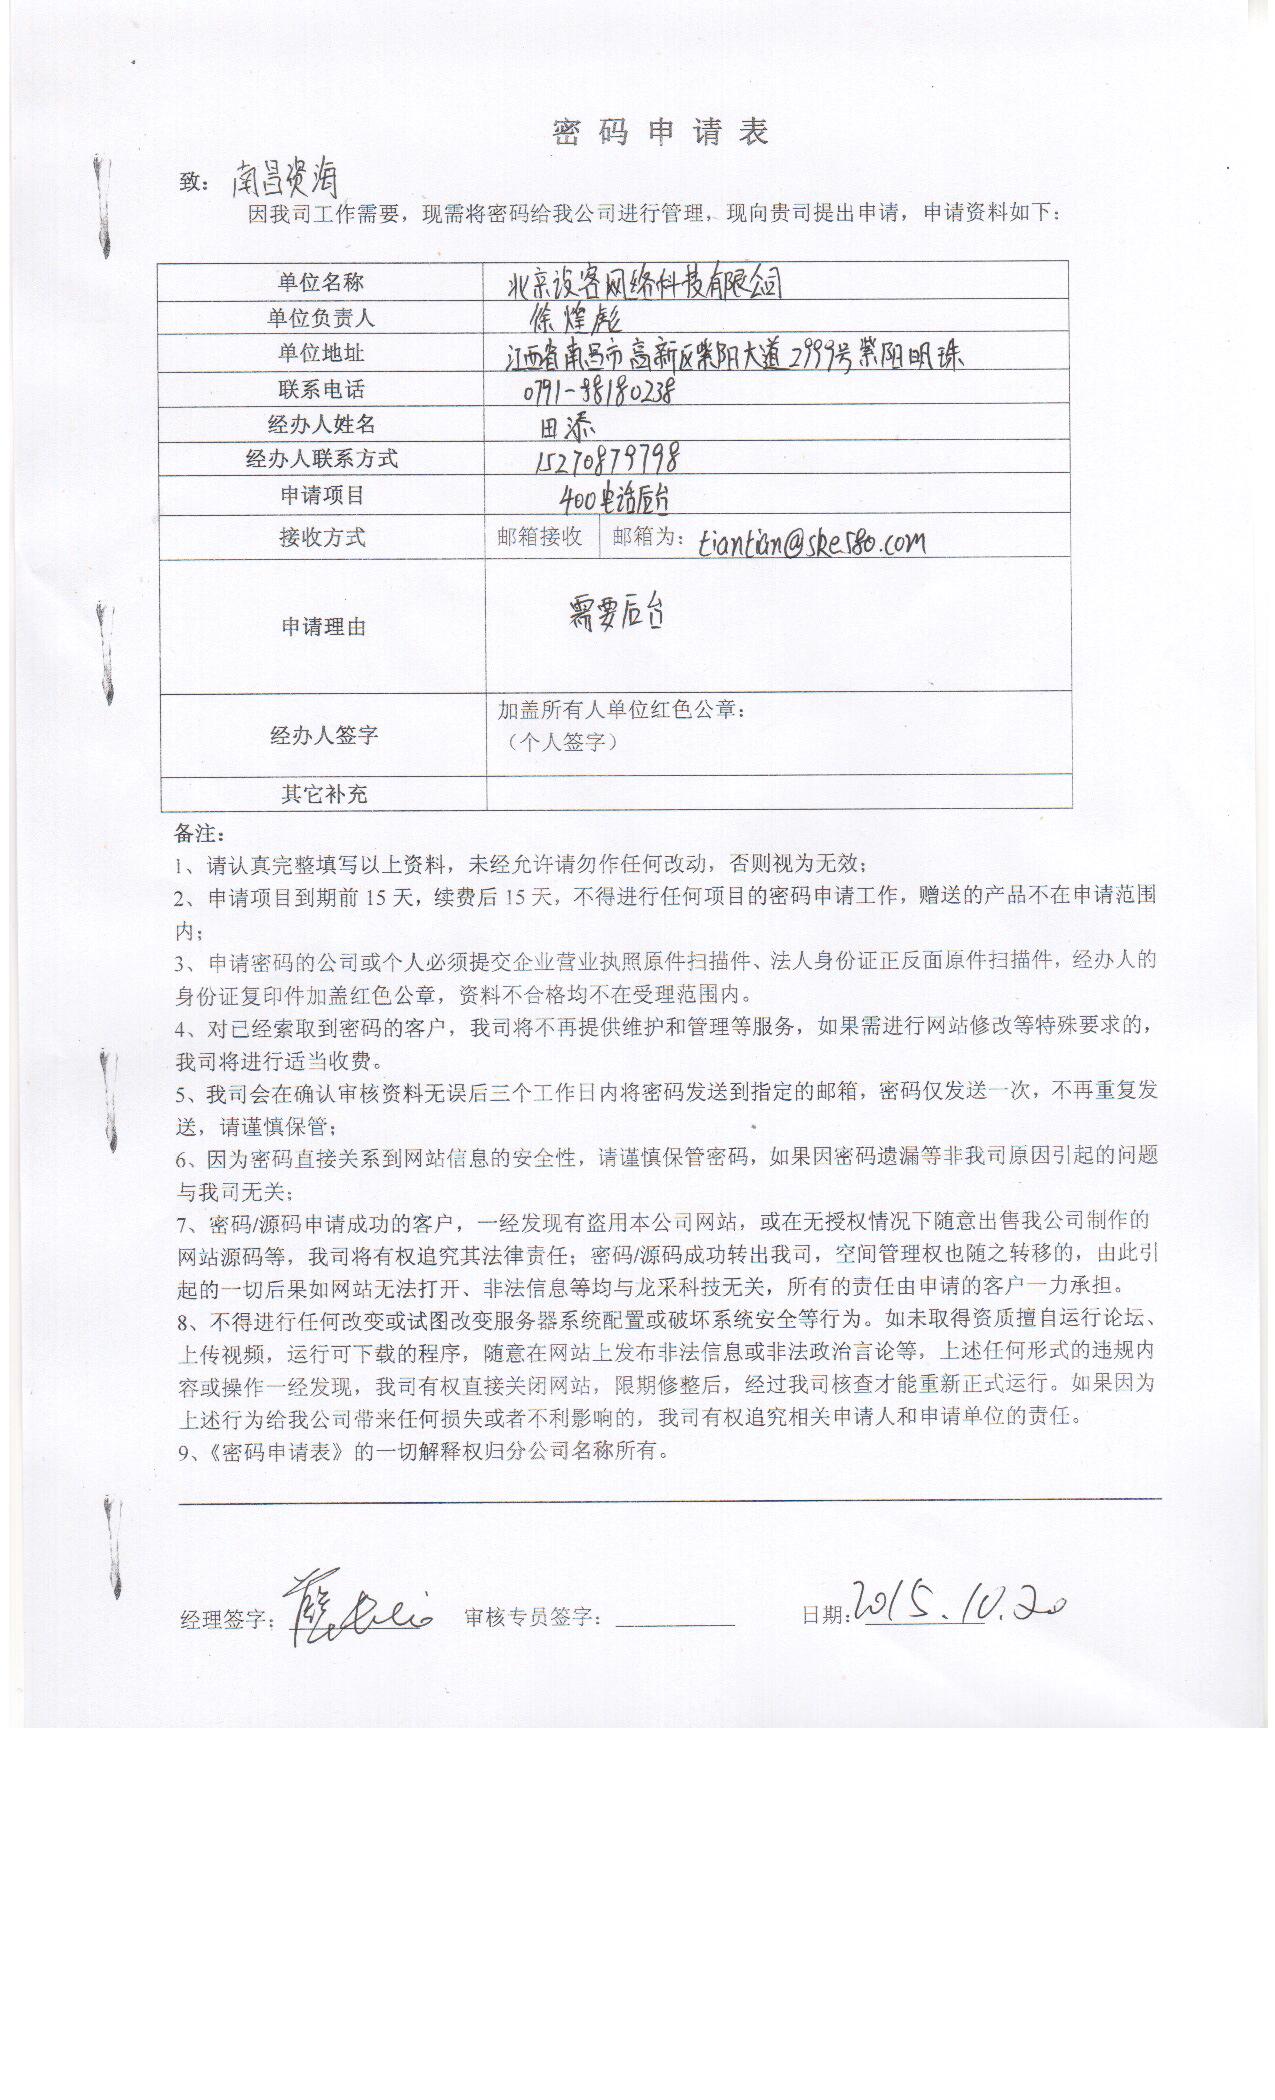 密码申请表
致：南昌资海
因我司工作需要，现需将密码给我公司进行管理，现向贵司提出申请，申请资料如下：
单位名称 北京设客网络科技有限公司
单位负责人 徐煌彪
单位地址 江西省南昌市高新区紫阳大道2999号紫阳明珠
联系电话 0791-98180238
经办人姓名 田添
经办人联系方式 15270879798
申请项目 400电话后台
接收方式 邮箱接收 邮箱为：tiantian@ske580.com
申请理由 需要后台
经办人签字 加盖所有人单位红色公章：
（个人签字）
其它补充
备注：
1、请认真完整填写以上资料，未经允许请勿作任何改动，否则视为无效；
2、申请项目到期前15天，续费后15天，不得进行任何项目的密码申请工作，赠送的产品不在申请范围
内；
3、申请密码的公司或个人必须提交企业营业执照原件扫描件、法人身份证正反面原件扫描件，经办人的
身份证复印件加盖红色公章，资料不合格均不在受理范围内。
4、对已经索取到密码的客户，我司将不再提供维护和管理等服务，如果需进行网站修改等特殊要求的，
我司将进行适当收费。
5、我司会在确认审核资料无误后三个工作日内将密码发送到指定的邮箱，密码仅发送一次，不再重复发
送，请谨慎保管；
6、因为密码直接关系到网站信息的安全性，请谨慎保管密码，如果因密码遗漏等非我司原因引起的问题
与我司无关；
7、密码/源码申请成功的客户，一经发现有盗用本公司网站，或在无授权情况下随意出售我公司制作的
网站源码等，我司将有权追究其法律责任；密码/源码成功转出我司，空间管理权也随之转移的，由此引
起的一切后果如网站无法打开、非法信息等均与龙采科技无关，所有的责任由申请的客户一力承担。
8、不得进行任何改变或试图改变服务器系统配置或破坏系统安全等行为。如未取得资质擅自运行论坛、
上传视频，运行可下载的程序，随意在网站上发布非法信息或非法政治言论等，上述任何形式的违规内
容或操作一经发现，我司有权直接关闭网站，限期修整后，经过我司核查才能重新正式运行。如果因为
上述行为给我公司带来任何损失或者不利影响的，我司有权追究相关申请人和申请单位的责任。
9、《密码申请表》的一切解释权归分公司名称所有。
经理签字： 审核专员签字： 日期：2015.10.20